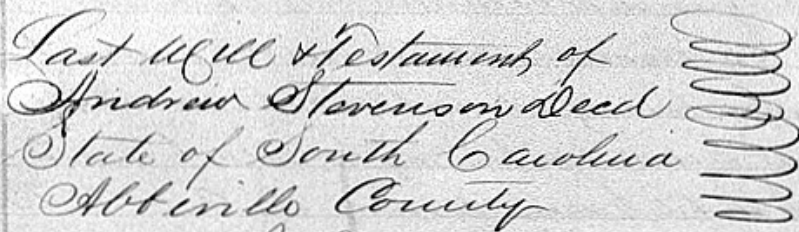 Last Will & Testament of
Andrew Stevenson Decd
State of South Carolina
Abbeville County